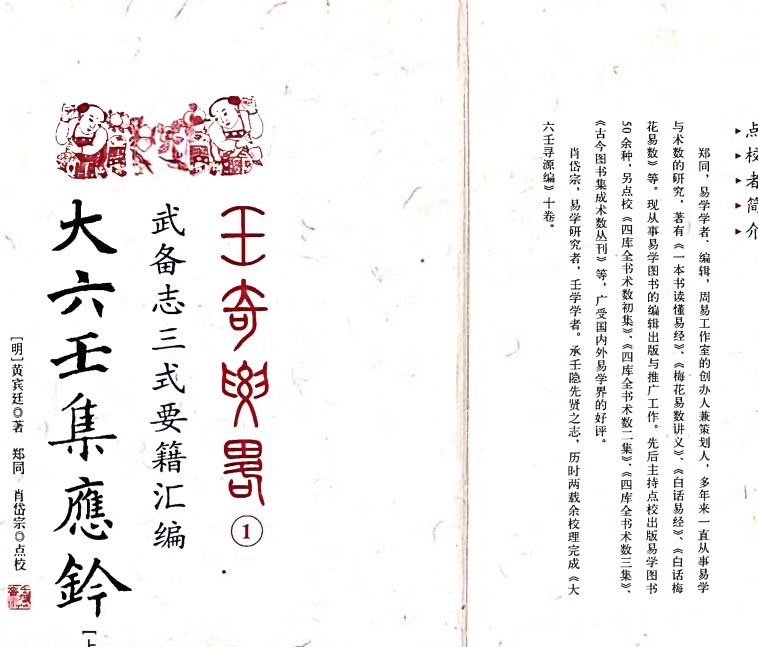 点校者简介
郑同，易学学者、编辑，周易工作室的创办人兼策划人，多年来一直从事易学
与术数的研究，著有《一本书读懂易经》、《梅花易数讲义》、《白话易经》、《白话梅
花易数》等。现从事易学图书的编辑出版与推广工作。先后主持点校出版易学图书
50余种，另点校《四库全书术数初集》、《四库全书术数二集》、《四库全书术数三集》、
《古今图书集成术数丛刊》等，广受国内外易学界的好评。
肖岱宗，易学研究者，壬学学者。承壬隐先贤之志，历时两载余校理完成《大
六壬寻源编》十卷。
壬奇要略
①
武备志三式要籍汇编
大六壬集應鈐
[上
[明]黄宾廷◎著 郑同 肖岱宗◎点校